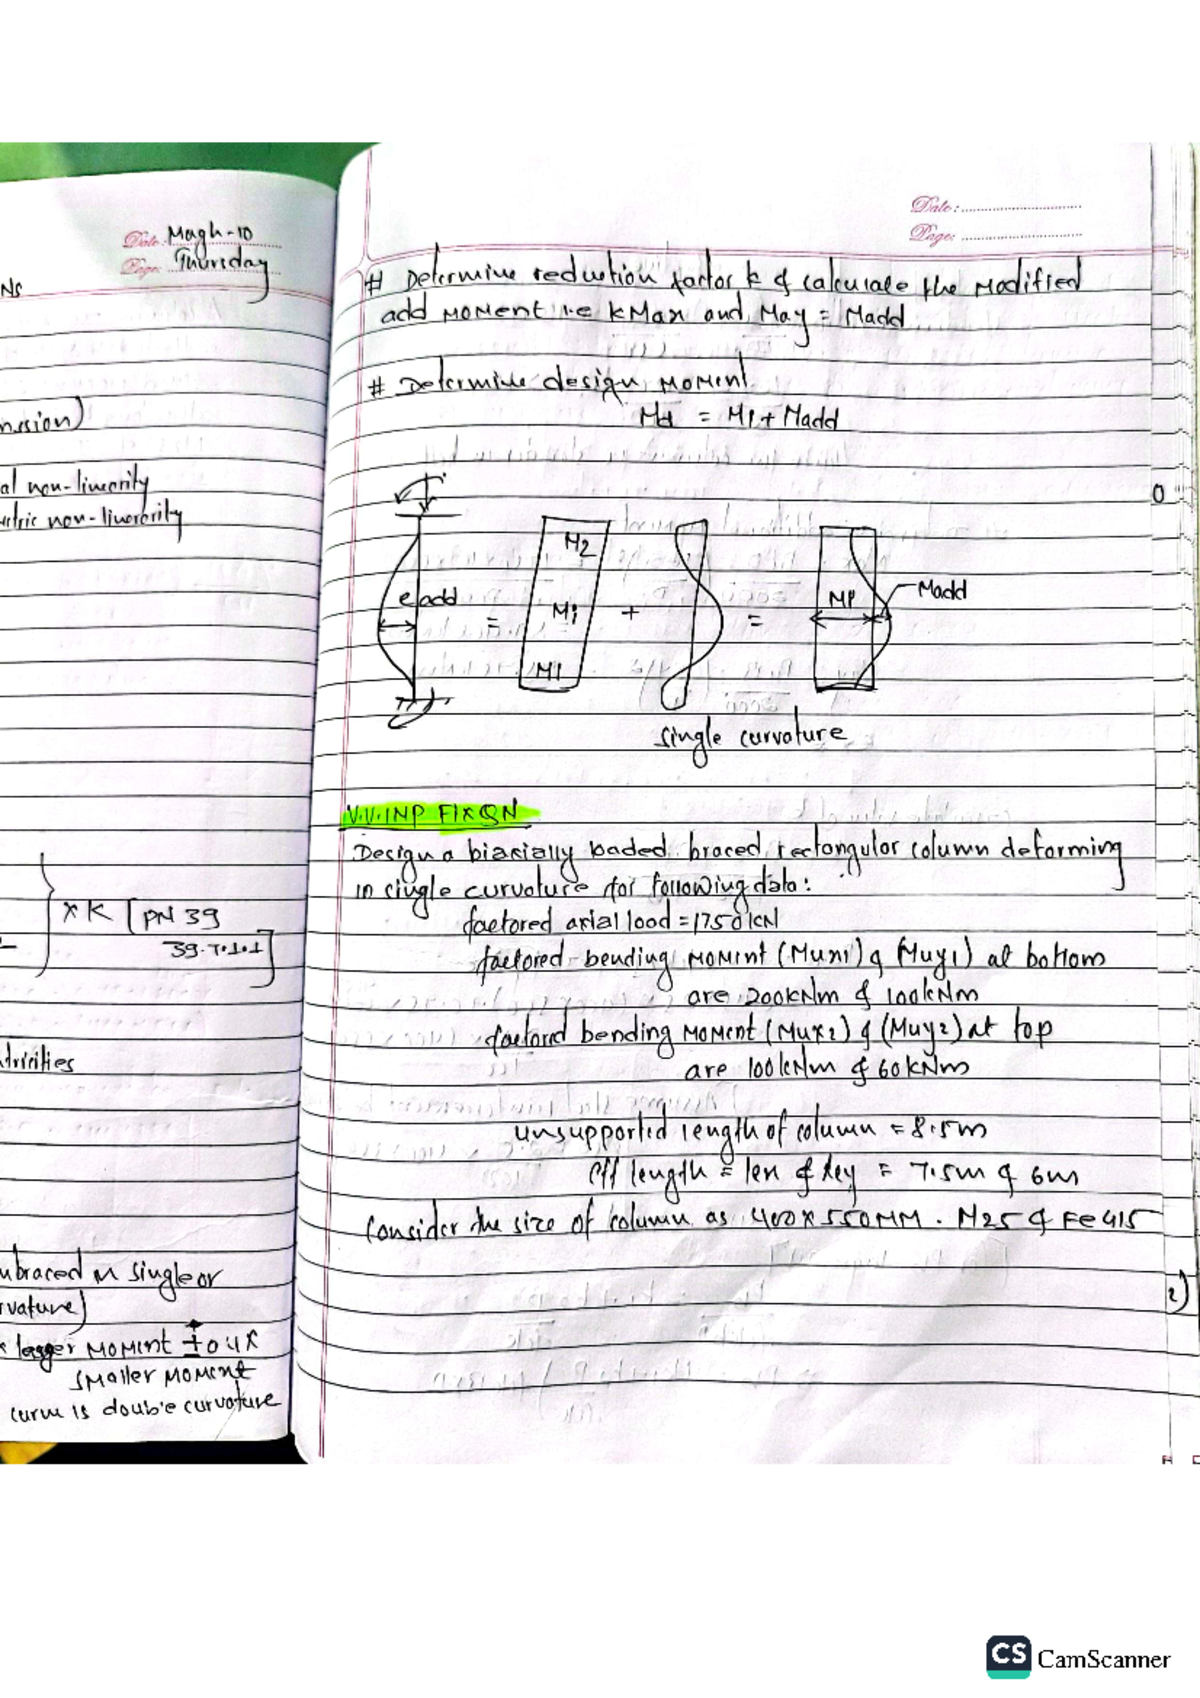 Date: Magh-10
Page: Thursday
Ns
nsion)
al non-linearity
etric non-linearity
x K [PN 39
39.7.1.1]
tricities
nbraced in single or
rvature)
x larger MOMENT ± 0.4x
smaller MOMENT
curve is double curvature
Date:
Page:
# Determine reduction factor k & calculate the Modified
add MOMENT i.e kMax and May = Madd
# Determine design MOMENT
Md = Mi + Madd
e add
=
M2
Mi
M1
+
=
Mi
Madd
single curvature
V.V.INP FIX QN
Design a biaxially loaded braced rectangular column deforming
in single curvature for following data:
factored axial load = 1750kN
factored bending MOMENT (Mux1) & (Muy1) at bottom
are 200kNm & 100kNm
factored bending MOMENT (Mux2) & (Muy2) at top
are 100kNm & 60kNm
unsupported length of column = 8.5m
eff length = lex & ley = 7.5m & 6m
Consider the size of column as 400x550MM. M25 & Fe415
0
2)
CS CamScanner